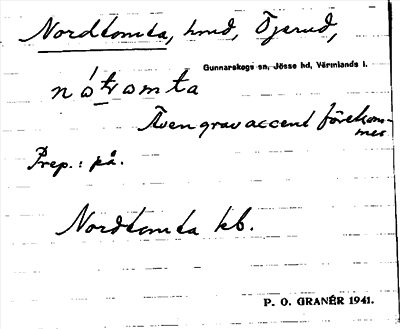 Nordtomta, hmd, Öjerud,
Gunnarskogs sn, Jösse hd, Värmlands l.
nótomta
Även grav accent förekom-
mer
Prep.: på.
Nordtomta kb.
P. O. GRANÉR 1941.